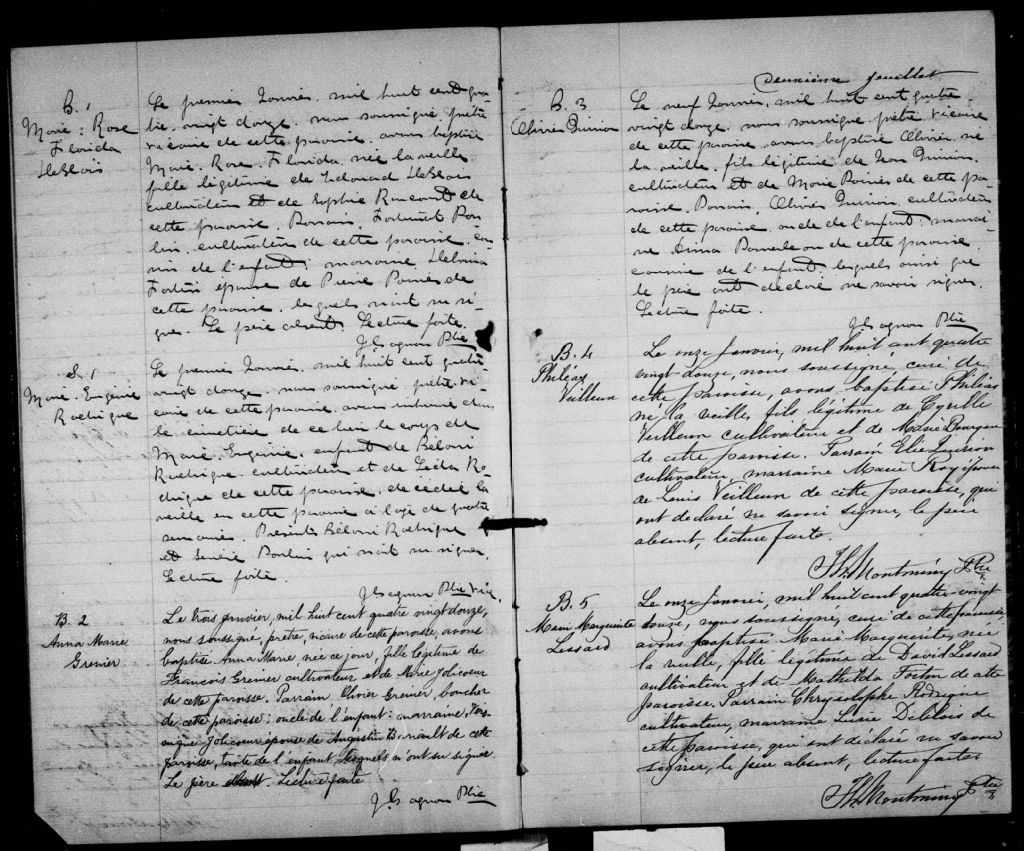 B. 1
Marie. Rose
Florida
DeBlois
Le premier Janvier, mil huit cent qua-
tre-vingt douze, nous soussigné prêtre
vicaire de cette paroisse avons baptisé
Marie. Rose. Florida, née la veille
fille légitime de Edouard DeBlois
cultivateur et de Sophie Rancourt de
cette paroisse. Parrain, Fortunat Pou-
lin, cultivateur de cette paroisse, cou-
sin de l'enfant; marraine
Fortin épouse de Pierre de
cette paroisse, lesquels n'ont su si-
gner. Le père absent. Lecture faite.
J Gagnon Ptre
S. 1
Marie. Eugénie
Rodrigue
Le premier Janvier, mil huit cent quatre
vingt douze, nous soussigné prêtre, vi-
caire de cette paroisse avons inhumé dans
le cimetière de ce lieu le corps de
Marie. Eugénie, enfant de Béloni
Rodrigue, cultivateur et de Léda Ro-
drigue de cette paroisse, décédée la
veille en cette paroisse à l'âge de quatre
semaines. Présents Béloni Rodrigue
et Poulin qui n'ont su signer.
Lecture faite.
J Gagnon Ptre Vic.
B 2
Anna Marie
Grenier
Le trois janvier, mil huit cent quatre vingt douze,
nous soussigné, prêtre, vicaire de cette paroisse, avons
baptisé Anna Marie née ce jour, fille légitime de
François Grenier cultivateur et de Marie Jolicoeur
de cette paroisse. Parrain, Olivier Grenier, boucher
de cette paroisse; oncle de l'enfant: marraine, Véro-
nique Jolicoeur épouse de Augustin de cette
paroisse, tante de l'enfant lesquels n'ont su signer
Le père absent. Lecture faite
J. Gagnon Ptre
Deuxième feuillet
B. 3
Olivier Quirion
Le neuf Janvier, mil huit cent quatre-
vingt douze, nous soussigné, prêtre, vicaire
de cette paroisse avons baptisé Olivier, né
la veille, fils légitime de Jean Quirion,
cultivateur et de Marie de cette pa-
roisse. Parrain, Olivier Quirion, cultivateur
de cette paroisse, oncle de l'enfant; marrai-
ne Anna de cette paroisse
cousine de l'enfant: lesquels ainsi que
le père ont déclaré ne savoir signer.
Lecture faite.
J Gagnon Ptre
B. 4
Philéas
Veilleux
Le onze Janvier, mil huit cent quatre
vingt-douze, nous soussigné, curé de
cette paroisse, avons baptisé Philéas
né la veille, fils légitime de Cyrille
Veilleux cultivateur et de Marie
de cette paroisse. Parrain Elie Quirion
cultivateur, marraine Marie Roy épouse
de Louis Veilleux de cette paroisse, qui
ont déclaré ne savoir signer, le père
absent, lecture faite.
Th. Montminy Ptre
B. 5
Marie Marguerite
Lessard
Le onze Janvier, mil huit cent quatre vingt
douze, nous soussigné, curé de cette paroisse,
avons baptisé Marie Marguerite, née
la veille, fille légitime de David Lessard
cultivateur et de Mathilda Fortin de cette
paroisse. Parrain Chrysologue Rodrigue
cultivateur, marraine Lucie Deblois de
cette paroisse, qui ont déclaré ne savoir
signer, le père absent, lecture faite.
Th. Montminy Ptre